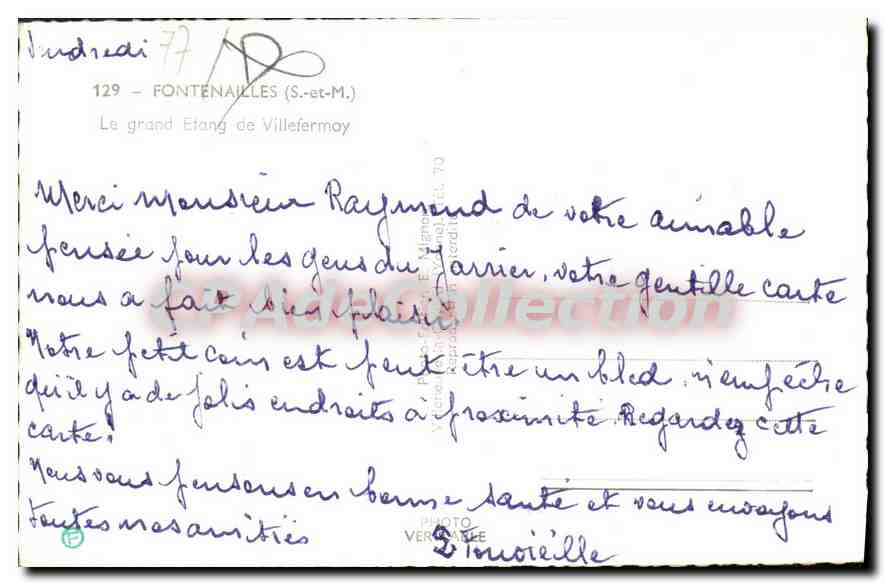 Vendredi 77
129 - FONTENAILLES (S.-et-M.)
Le grand Etang de Villefermoy
Merci Monsieur Raymond de votre aimable
pensée pour les gens du Jarrier, votre gentille carte
nous a fait bien plaisir.
Notre petit coin est peut être un bled, n'empêche
qu'il y a de jolis endroits à proximité. Regardez cette
carte!
Nous vous pensons en bonne santé et vous envoyons
toutes nos amitiés
PHOTO
VERITABLE
CPAdeCollection